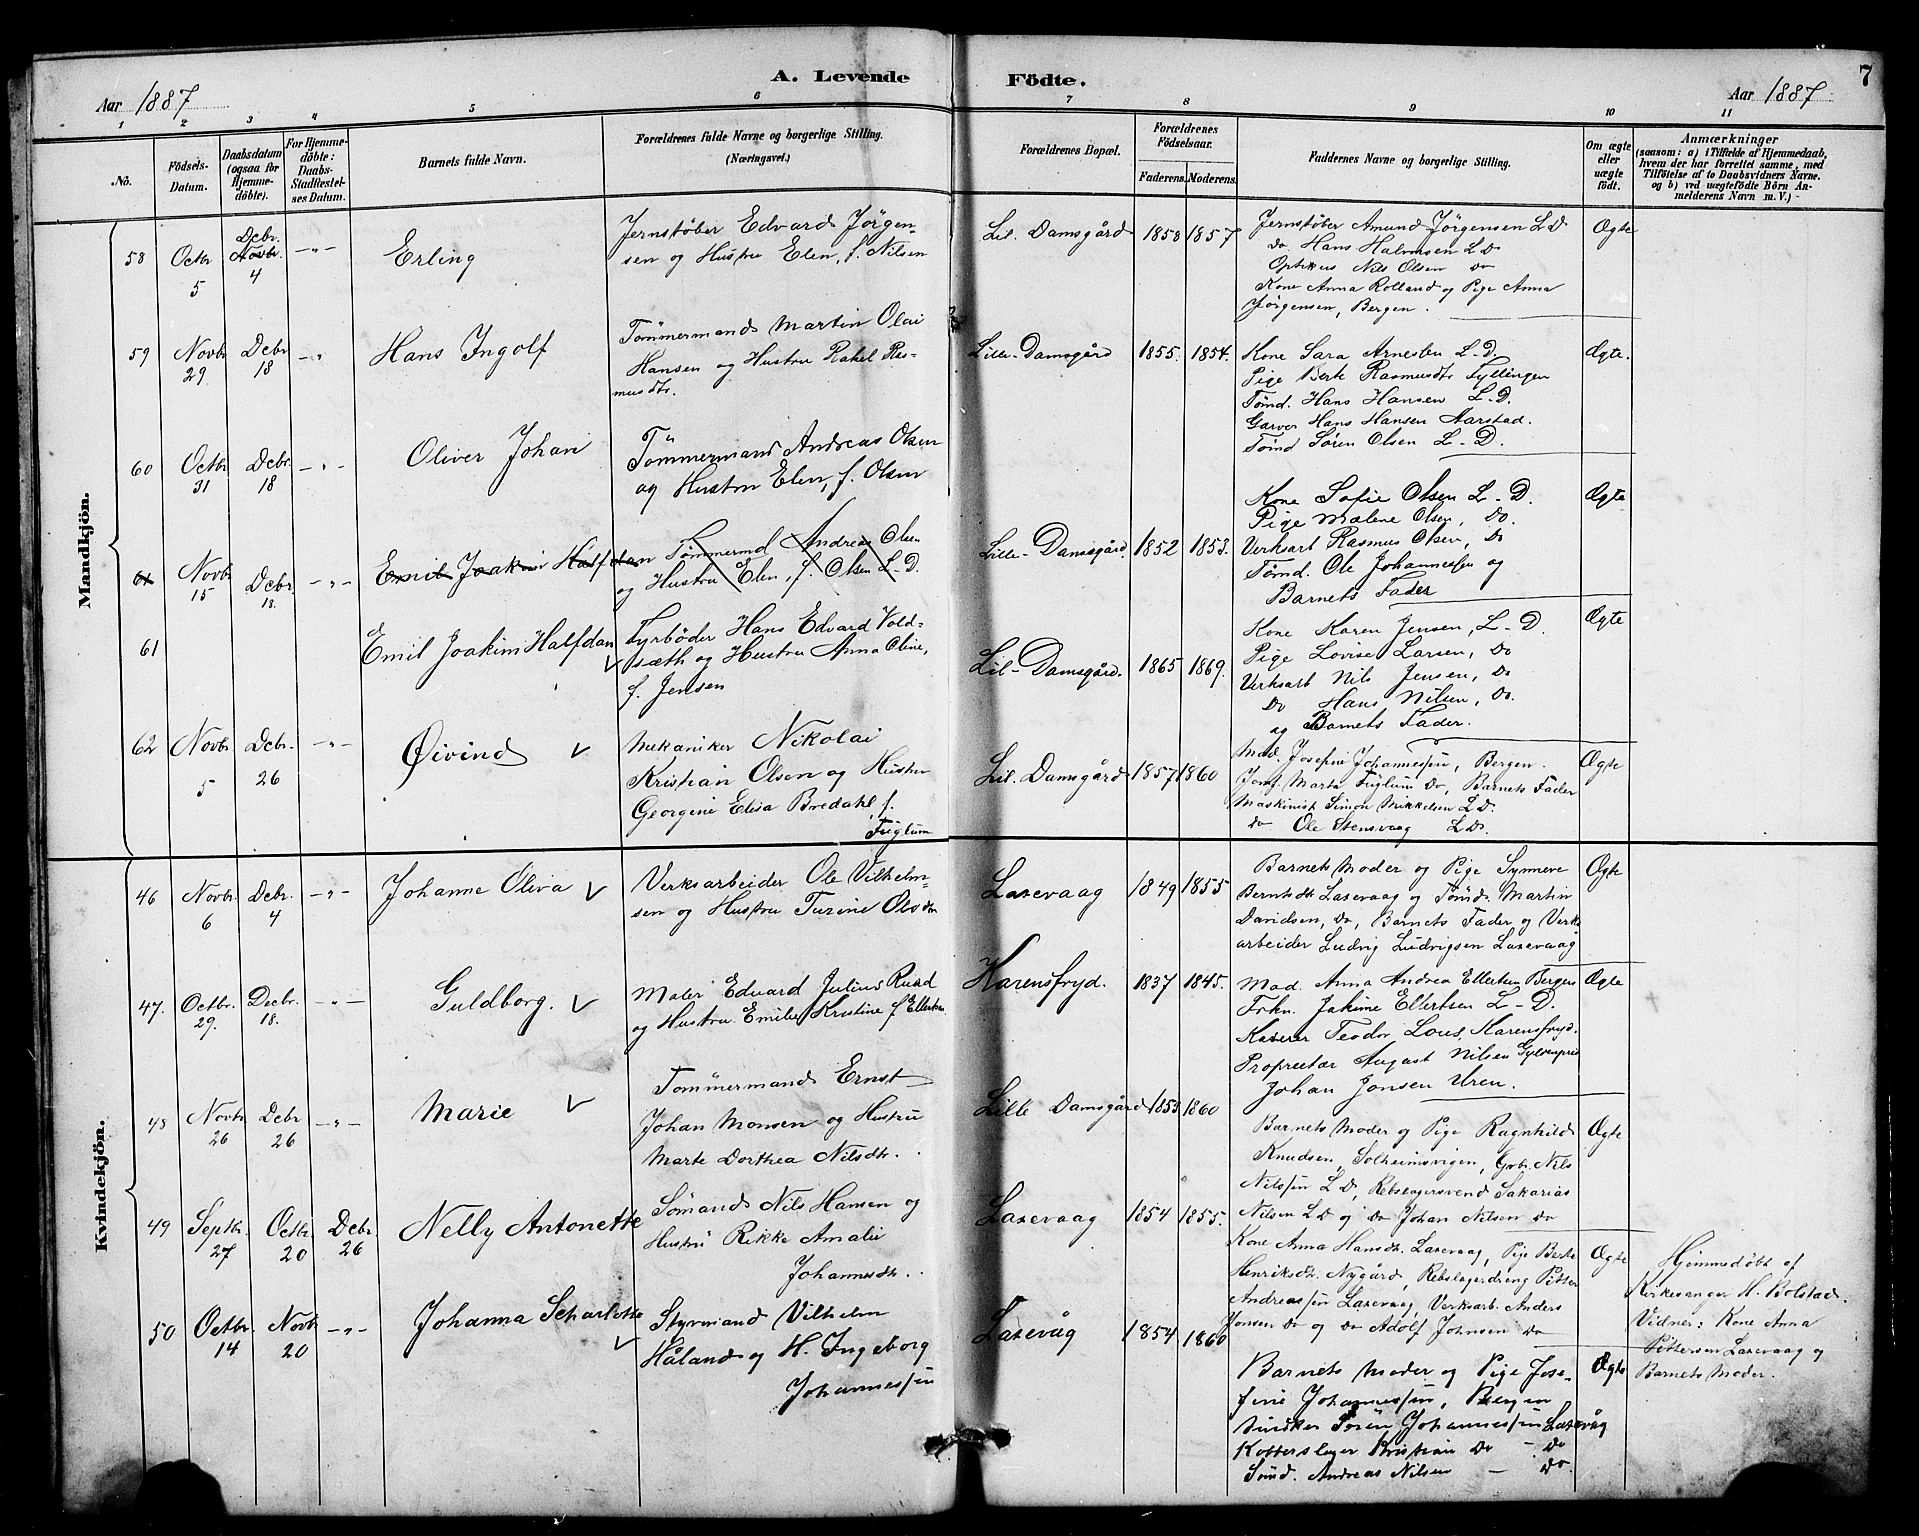 A. Levende Födte.
7
Aar 1887
Aar 1887
1 2 3 4 5 6 7 8 9 10 11
No.
Födsels-
Datum.
Daabsdatum
(ogsaa for
Hjemme-
döbte).
For Hjemme-
döbte:
Daabs-
Stadfestel-
ses Datum.
Barnets fulde Navn.
Forældrenes fulde Navne og borgerlige Stilling.
(Næringsvei.)
Forældrenes Bopæl.
Forældrenes
Födselsaar.
Faderens. Moderens.
Faddernes Navne og borgerlige Stilling.
Om ægte
eller
uægte
født.
Anmærkninger
(saasom: a) i Tilfælde af Hjemmedaab,
hvem der har forrettet samme, med
Tilföielse af to Daabsvidners Navne.
og b) ved uægtefödte Börn An-
melderens Navn m. V.)
Mandkjön.
58
Octbr
5
Debr.
Novbr.
4
-"-
Erling
Jernstøber Edvard Jørgen-
sen og Hustru Elen, f. Nilsen
Lil. Damsgård
1858
1857
Jernstøber Amund Jørgensen L D
Do Hans Halvorsen L D
Optikus Nils Olsen Do
Kone Anna Rolland og Pige Anna
Jørgensen, Bergen.
Ægte
59
Novbr
29
Debr
18
-"-
Hans Ingolf
Tömmermand Martin Olai
Hansen og Hustru Rakel Ras-
musdtr.
Lille-Damsgård
1855.
1854.
Kone Sara Arnesten L-D.
Pige Berte Rasmusdtr Fyllingen
Tömd. Hans Hansen L.D.
Garver Hans Hansen Aarstad.
Tömd Sören Olsen L-D.
Ægte.
60
Octbr
31
Debr
18
-"-
Oliver Johan
Tömmermand Andreas Olsen
og Hustru Elen, f. Olsen
Lille-Damsgård.
1852
1853.
Kone Sofie Olsen L-D.
Pige Malene Olsen, Do.
Verksarb Rasmus Olsen, Do
Tömd. Ole Johannessen og
Barnets Fader
Ægte
61
Novbr
15
Debr
18.
-"-
Emil Joakim Halfdan
Tømmermd Andreas Olsen
og Hustru Elen, f. Olsen L-D.
61
Emil Joakim Halfdan
Fyrbøder Hans Edvard Vold-
sæth og Hustru Anna Oline,
f. Jensen
Lil-Damsgård.
1865
1869.
Kone Karen Jensen, L-D.
Pige Lovise Larsen, Do
Verksarb Nils Jensen, Do
Do Hans Nilsen, Do.
og Barnets Fader.
Ægte
62
Novbr
5
Debr.
26
-"-
Øivind
Mekaniker Nikolai
Kristian Olsen og Hustru
Georgine Elisa Bredahl, f.
Füglum
Lil. Damsgård
1857
1860
Mad. Josefine Johannessen, Bergen.
Jomf. Marta Füglum Do, Barnets Fader
Maskinist Simon Mikkelsen L D.
Do Ole Stensvaag L D.
Ægte
Kvindekjön.
46
Novbr
6
Debr.
4
-"-
Johanne Oliva
Verksarbeider Ole Vilhelm-
sen og Hustru Turine Olsdtr
Laxevaag
1849
1855
Barnets Moder og Pige Synneve
Berntsdtr Laxevaag og Tømd. Martin
Davidsen, Do, Barnets Fader og Verks
arbeider Ludvig Ludvigsen Laxevaag
Ægte
47.
Octbr.
29
Decbr.
18.
-"-
Guldborg.
Maler Edvard Julius Ruud
og Hustru Emilie Kristine f Ellertsen
Karensfryd.
1837
1845.
Mad. Anna Andrea Ellertsen Bergen
Frkn. Jakime Ellertsen L-D.
Kaserer Teodor Lous, Karensfryd.
Proprietær August Nilsen Gyldenpris
Johan Jonsen Uren.
Ægte
48
Novbr
26
Debr
26
-"-
Marie
Tommermand Ernst
Johan Monsen og Hustru
Marte Dorthea Nilsdtr.
Lille Damsgård
1853
1860
Barnets Moder og Pige Ragnhild
Knudsen, Solheimsvigen, Grbr. Nils
Nilssen L D, Rebslagersvend Sakarias
Nilsen L D og Do Johan Nilsen Do
Ægte
49
Septbr.
27
Octbr.
20
Debr
26
Nelly Antonette
Sømand Nils Hansen og
Hustru Rikke Amalie
Johannesdtr.
Laxevaag
1854
1855.
Kone Anna Hansdtr. Laxevaag, Pige Berte
Henriksdtr. Nygård, Rebslagerdreng Pitter
Andreassen Laxevaag, Verksarb. Anders
Jonsen Do og Do Adolf Johnsen Do
Ægte
Hjemmedøbt af
Kirkesanger H. Bolstad.
Vidner: Kone Anna
Pittersen Laxevaag og
Barnets Moder.
50
Octbr.
14
Novb
20
-"-
Johanna Scharlotte
Styrmand Vilhelm
Håland og H. Ingeborg
Johannessen
Laxevåg
1854
1860
Barnets Moder og Pige Jose-
fine Johannessen, Bergen
Snidker Sörin Johannessen Laxevåg
Kobberslager Kristian Do - Do
Sömd. Andreas Nilsen - Do.
Ægte